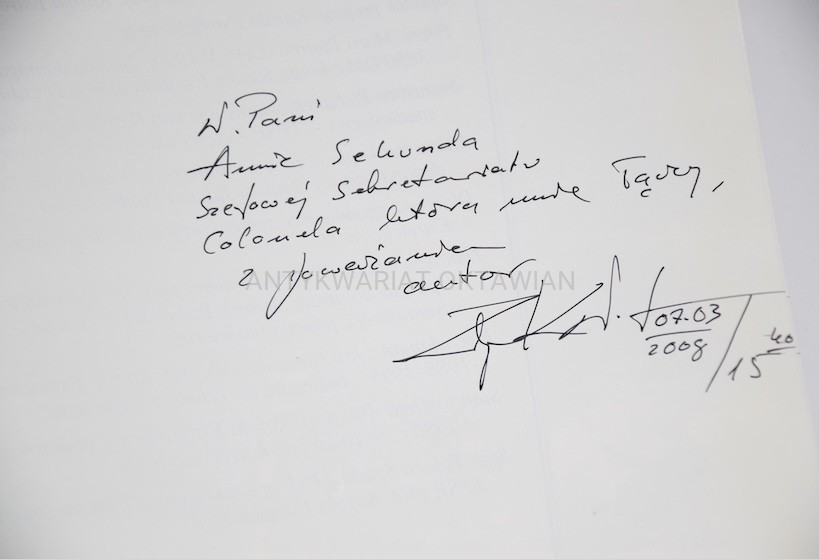 W. Pani
Annie Sekunda
Szefowej Sekretariatu
Colonela która mnie łączy,
z poważaniem
autor
ANTYKWARIAT OKTAWIAN
07.03
2008
15 40